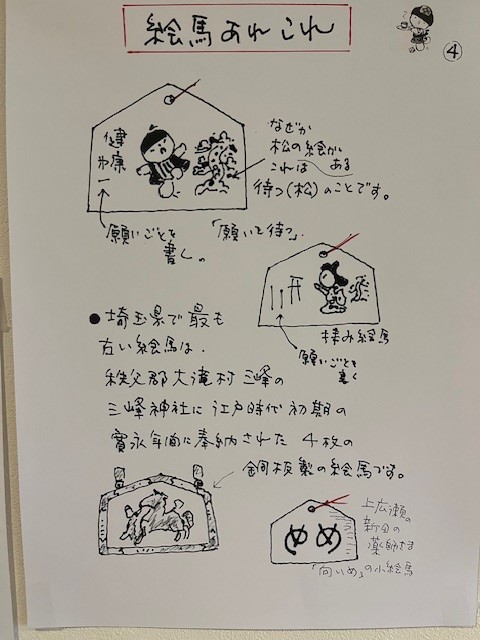 絵馬あれこれ
④
健康
第一
なぜか
松の絵が
ある
これは
待つ(松)のことです。
願いごとを
書く。
「願いを待つ」
拝み絵馬
願いごとを
書く
●埼玉県で最も
古い絵馬は、
秩父郡大滝村三峰の
三峰神社に江戸時代初期の
寛永年間に奉納された4枚の
銅板製の絵馬です。
めめ
上広瀬の
新田の
薬師さま
「向いめ」の小絵馬